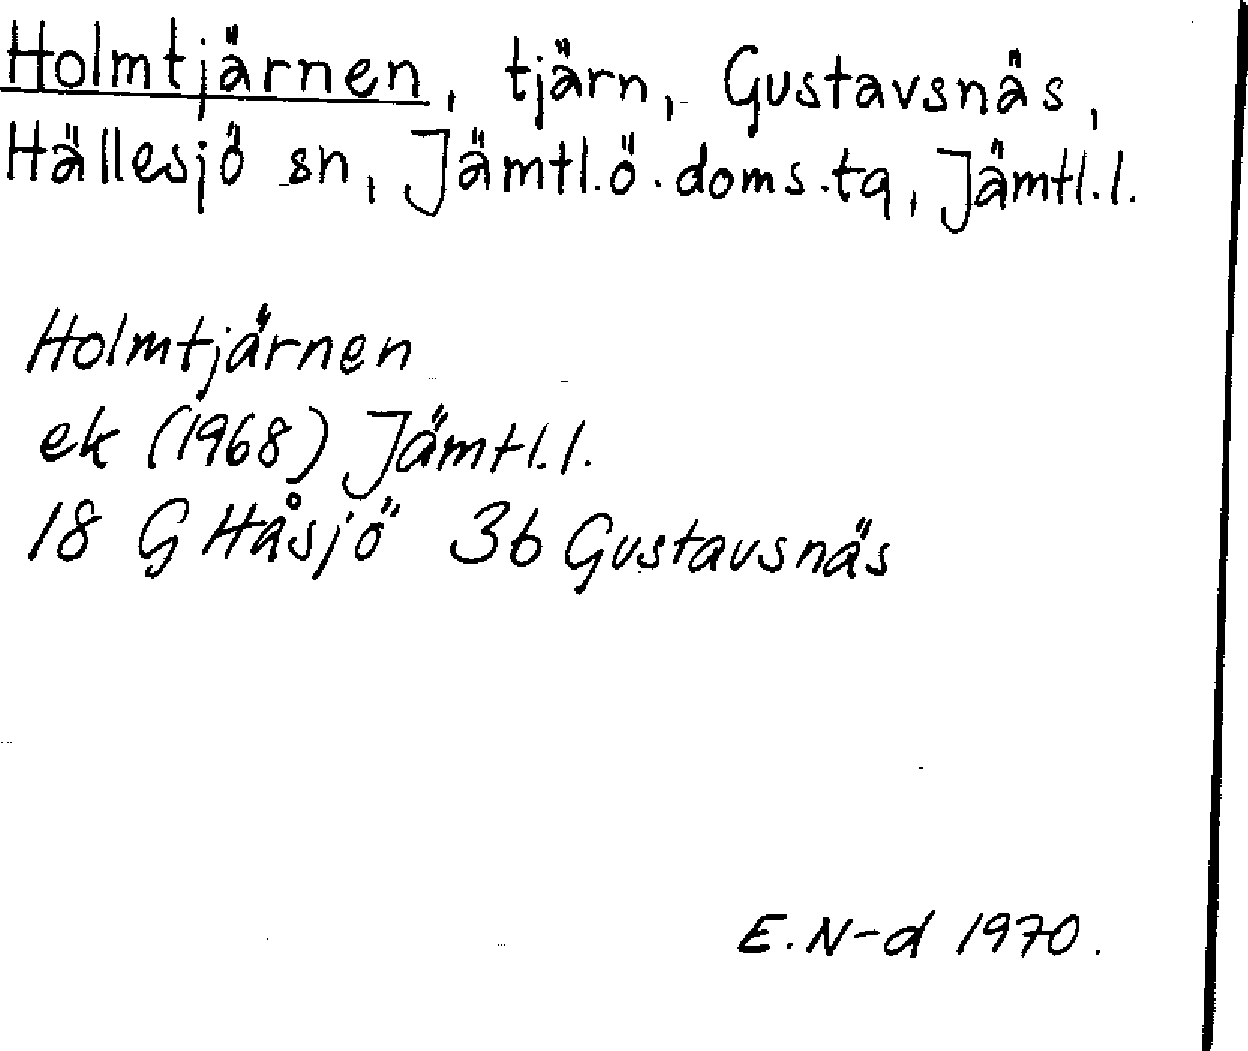 Holmtjärnen, tjärn, Gustavsnäs,
Hällesjö sn, Jämtl.ö.doms.tg, Jämtl.l.
Holmtjärnen
ek (1968) Jämtl.l.
18 G Håsjö 3b Gustavsnäs
E.N-d 1970.